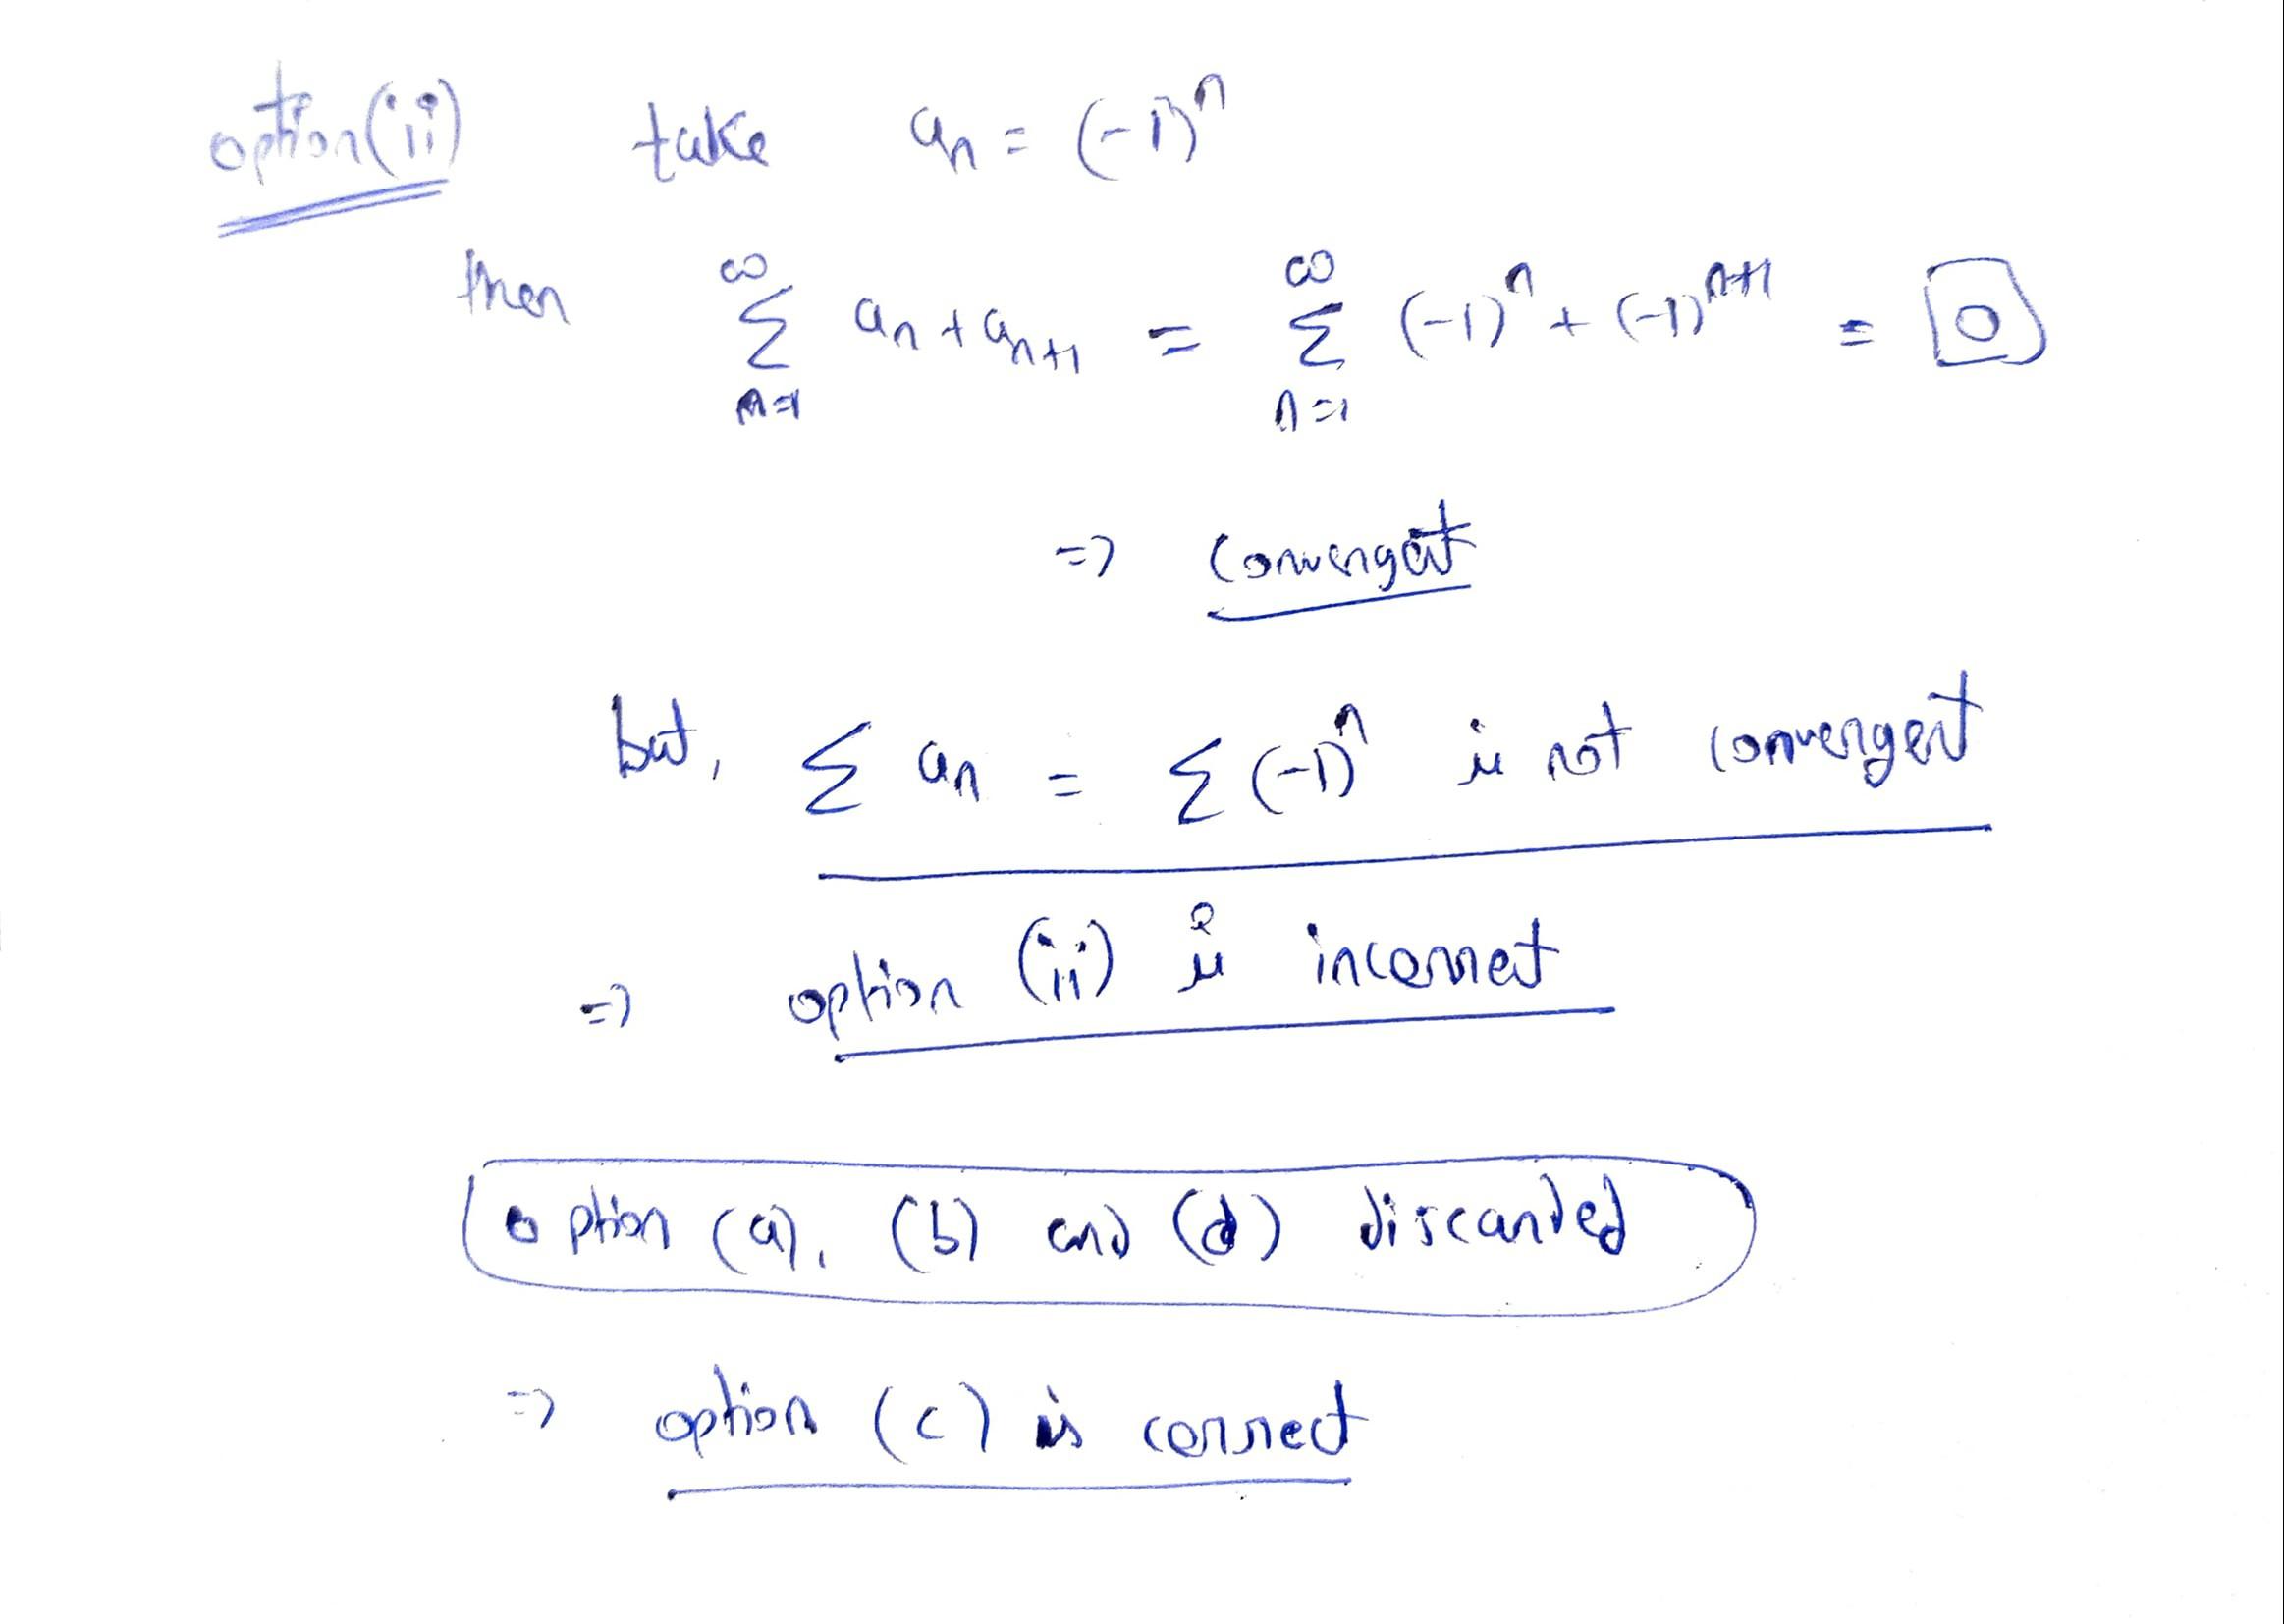 option(ii) take aₙ = (-1)ⁿ
then ∑_{n=1}^{∞} aₙ + aₙ₊₁ = ∑_{n=1}^{∞} (-1)ⁿ + (-1)ⁿ⁺¹ = 0
=> convergent
but, ∑ aₙ = ∑ (-1)ⁿ is not convergent
=> option (ii) is incorrect
option (a), (b) and (d) discarded
=> option (c) is correct